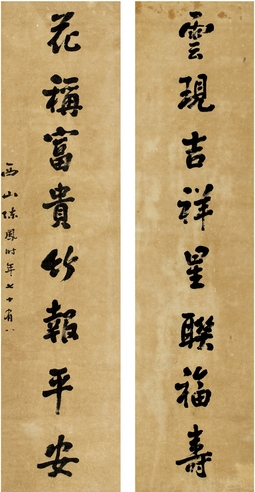 雲現吉祥星聯福壽
花稱富貴竹報平安
西山陳鳳時年七十有八